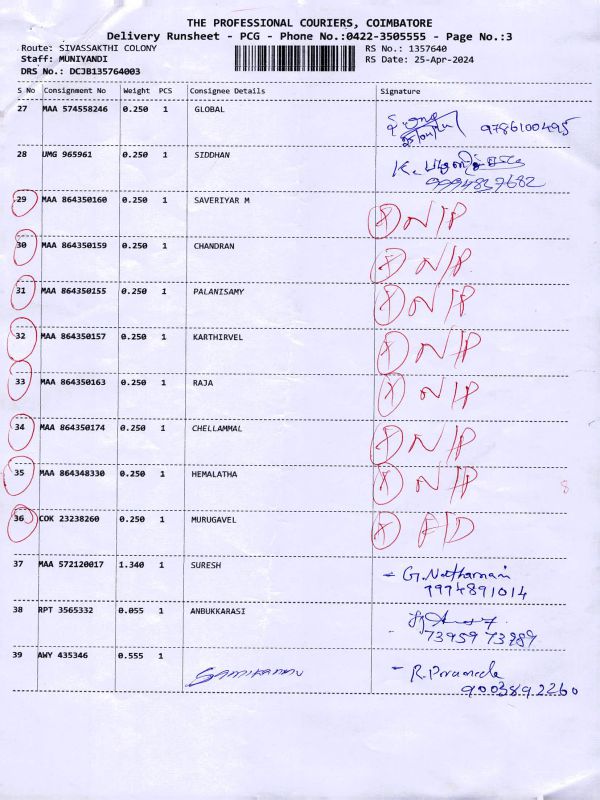 THE PROFESSIONAL COURIERS, COIMBATORE
Delivery Runsheet - PCG - Phone No.:0422-3505555 - Page No.:3
Route: SIVASSAKTHI COLONY RS No.: 1357640
Staff: MUNIYANDI RS Date: 25-Apr-2024
DRS No.: DCJB135764003
S No Consignment No Weight PCS Consignee Details Signature
27 MAA 574558246 0.250 1 GLOBAL 9786100495
28 UMG 965961 0.250 1 SIDDHAN
9994827682
29 MAA 864350160 0.250 1 SAVERIYAR M X N/P
30 MAA 864350159 0.250 1 CHANDRAN X N/P
31 MAA 864350155 0.250 1 PALANISAMY X N/P
32 MAA 864350157 0.250 1 KARTHIRVEL X N/P
33 MAA 864350163 0.250 1 RAJA X N/P
34 MAA 864350174 0.250 1 CHELLAMMAL X N/P
35 MAA 864348330 0.250 1 HEMALATHA X N/P 8
36 COK 23238260 0.250 1 MURUGAVEL X
37 MAA 572120017 1.340 1 SURESH
7974891014
38 RPT 3565332 0.055 1 ANBUKKARASI
73959 73989
39 AWY 435346 0.555 1
9003892260